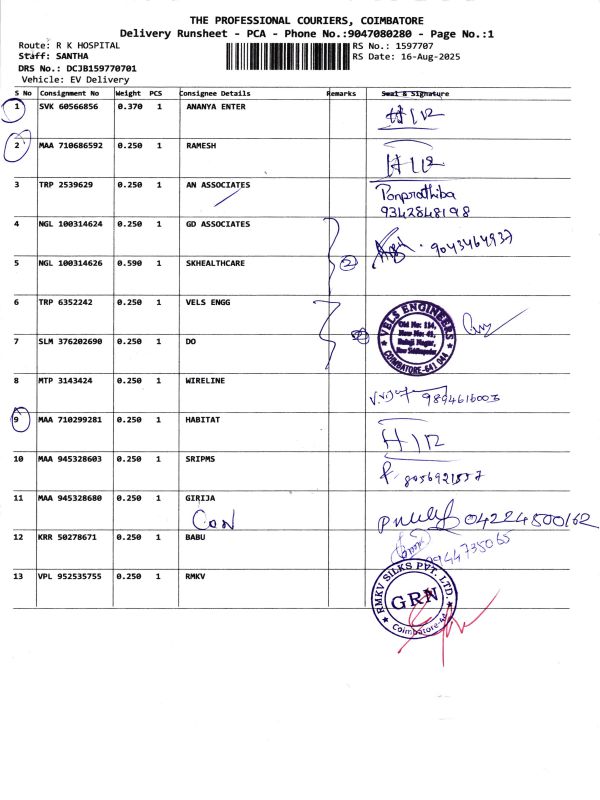 THE PROFESSIONAL COURIERS, COIMBATORE
Delivery Runsheet - PCA - Phone No.:9047080280 - Page No.:1
Route: R K HOSPITAL RS No.: 1597707
Staff: SANTHA RS Date: 16-Aug-2025
DRS No.: DCJB159770701
Vehicle: EV Delivery
S No Consignment No Weight PCS Consignee Details Remarks Seal & Signature
1 SVK 60566856 0.370 1 ANANYA ENTER
2 MAA 710686592 0.250 1 RAMESH
3 TRP 2539629 0.250 1 AN ASSOCIATES Ponprathiba
9342848198
4 NGL 100314624 0.250 1 GD ASSOCIATES 9043464937
5 NGL 100314626 0.590 1 SKHEALTHCARE 2
6 TRP 6352242 0.250 1 VELS ENGG
VELS ENGINEERS
Old No: 114,
New No: 41,
Balaji Nagar,
New Siddhapudur
COIMBATORE-641 044
7 SLM 376202690 0.250 1 DO
8 MTP 3143424 0.250 1 WIRELINE 9894616003
9 MAA 710299281 0.250 1 HABITAT
10 MAA 945328603 0.250 1 SRIPMS 8056921557
11 MAA 945328680 0.250 1 GIRIJA
CON 04224500162
12 KRR 50278671 0.250 1 BABU
13 VPL 952535755 0.250 1 RMKV
RMKV SILKS PVT. LTD.
GRN
Coimbatore-64